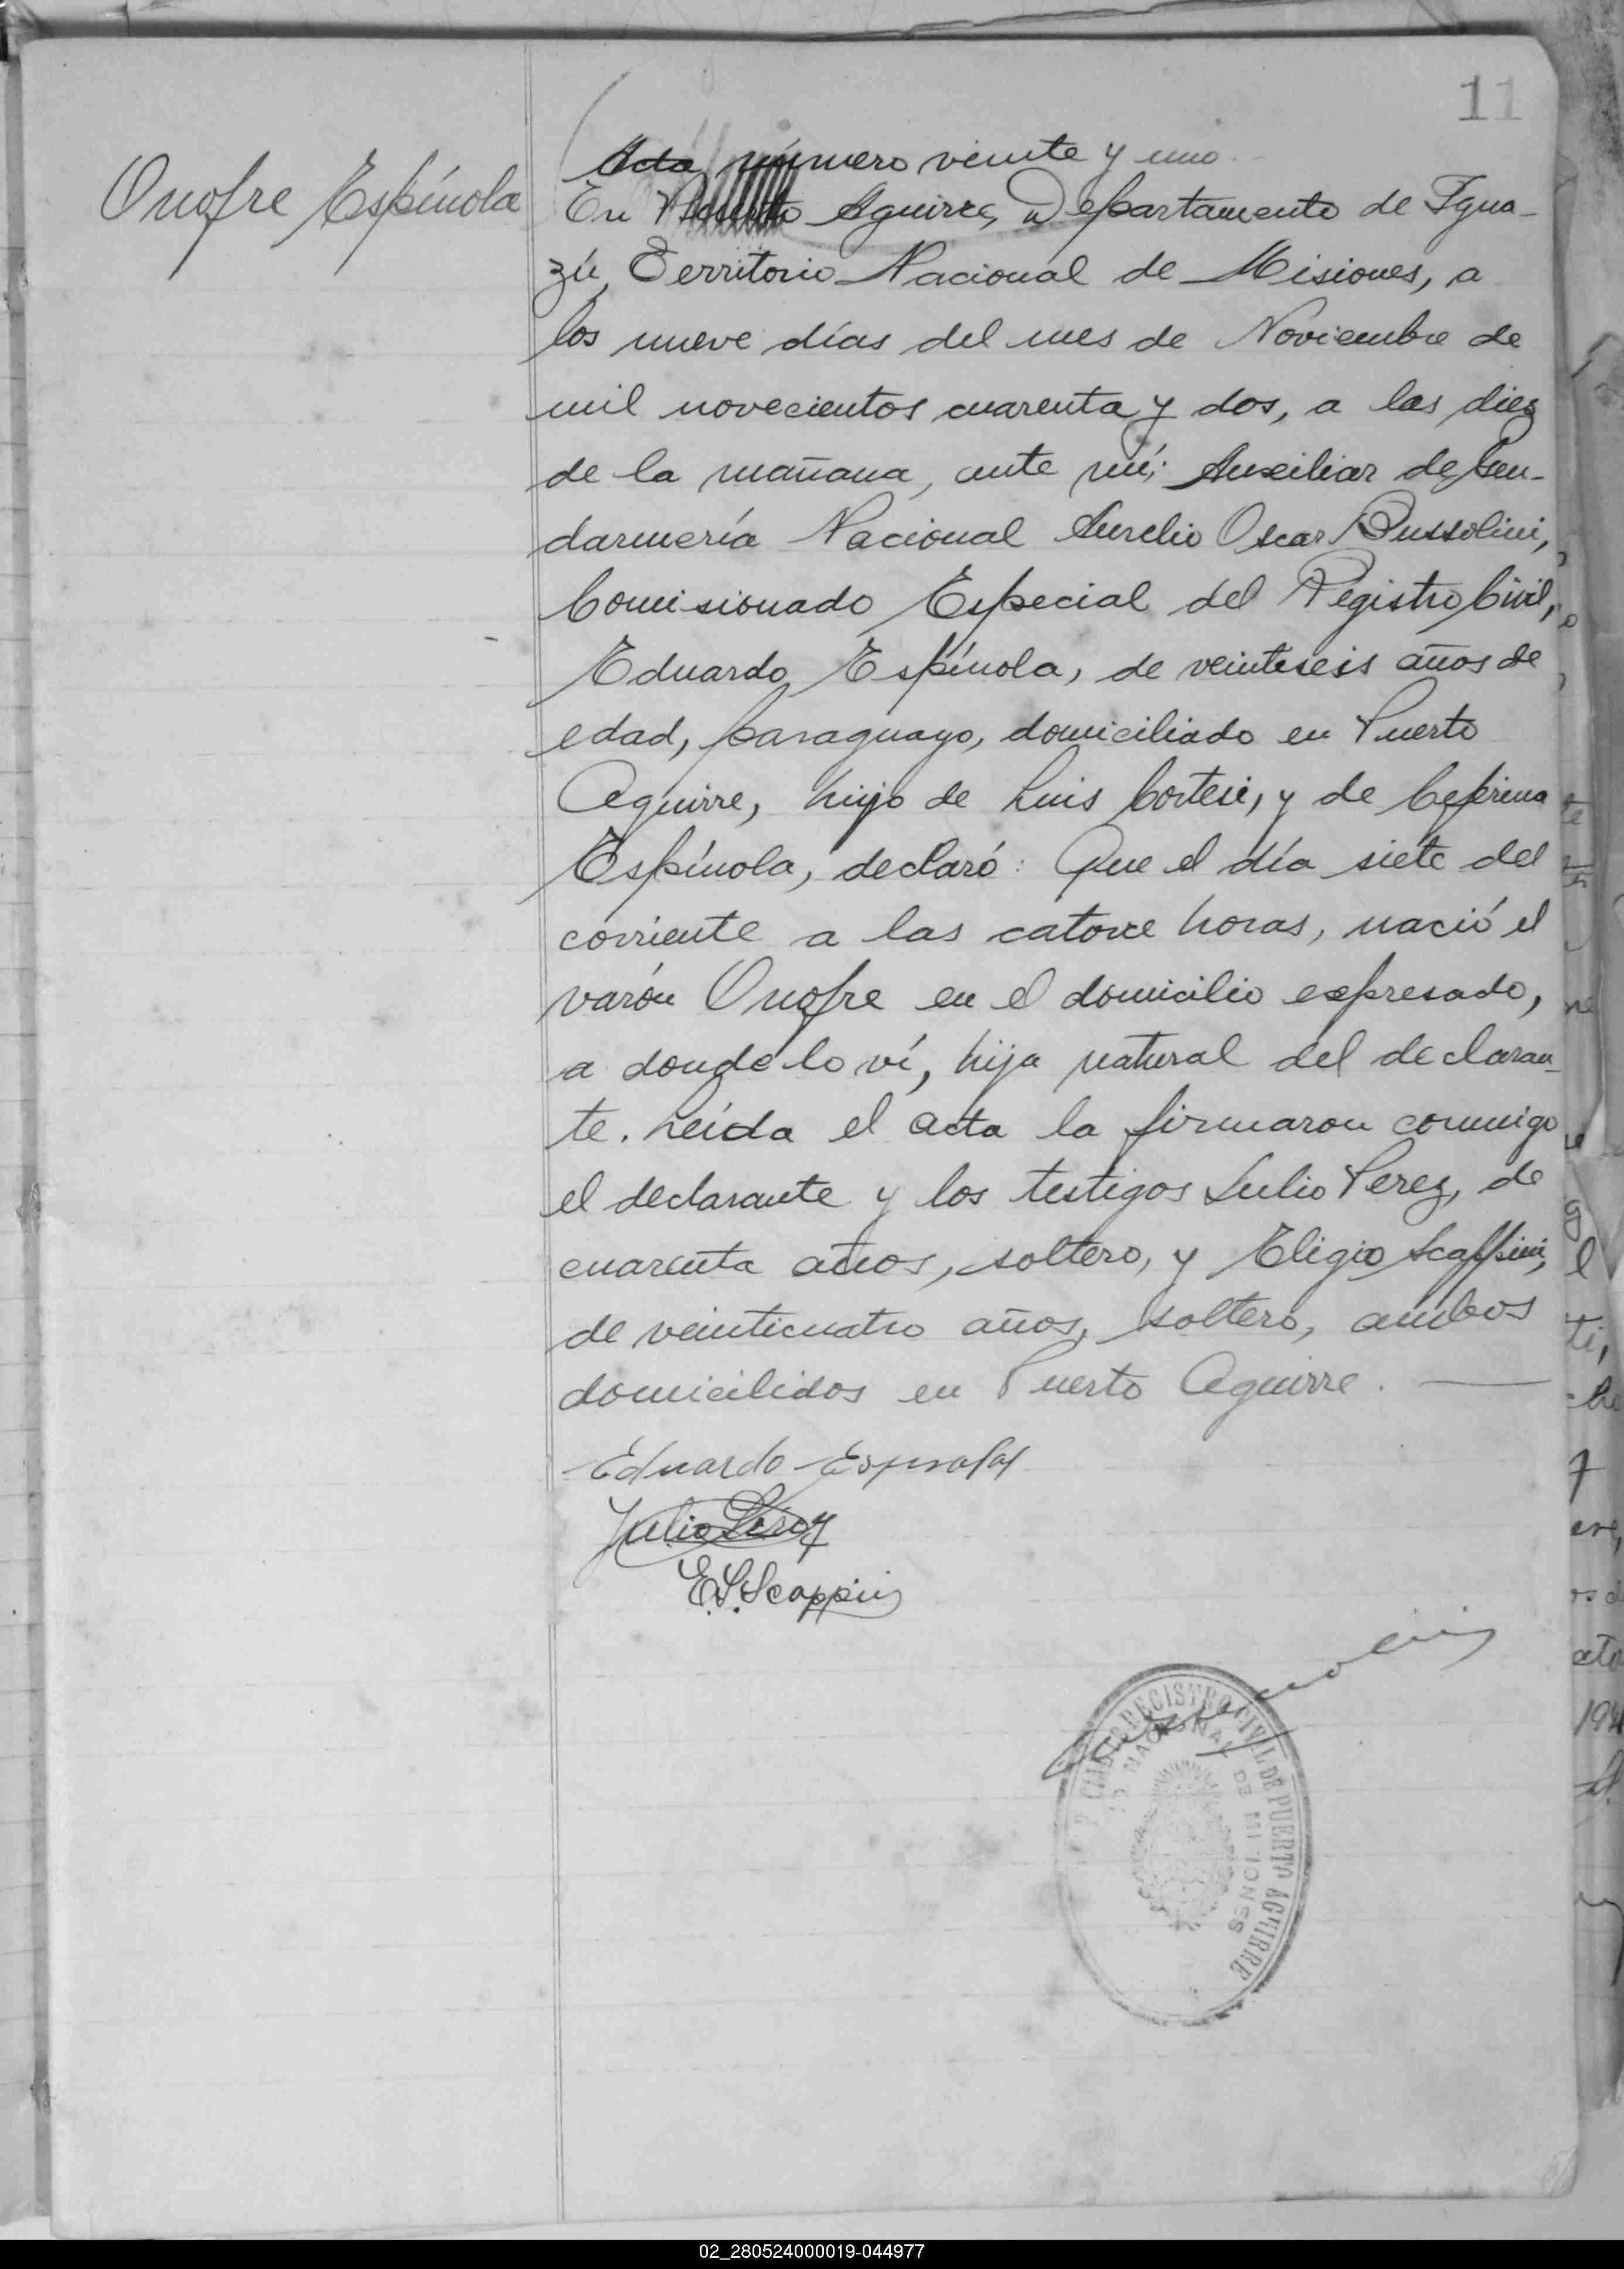 11
Onofre Espínola
Acta número veinte y uno.
En Puerto Aguirre, Departamento de Igua-
zú, Territorio Nacional de Misiones, a
los nueve días del mes de Noviembre de
mil novecientos cuarenta y dos, a las diez
de la mañana, ante mí; Auxiliar de Gen-
darmería Nacional Aurelio Oscar Bussolini,
Comisionado Especial del Registro Civil,
Eduardo Espínola, de veinteseis años de
edad, paraguayo, domiciliado en Puerto
Aguirre, hijo de Luis Cortesi, y de Ceferina
Espínola, declaró: Que el día siete del
corriente a las catorce horas, nació el
varón Onofre en el domicilio expresado,
a donde lo ví, hijo natural del declaran-
te. Leída el acta la firmaron conmigo
el declarante y los testigos Julio Perez, de
cuarenta años, soltero, y Eligio Scappini,
de veinticuatro años, soltero, ambos
domicilidos en Puerto Aguirre.
Eduardo Espinola
Julio Perez
E.S. Scappini
REGISTRO CIVIL DE PUERTO AGUIRRE
NACIONAL DE MISIONES
02_280524000019-044977